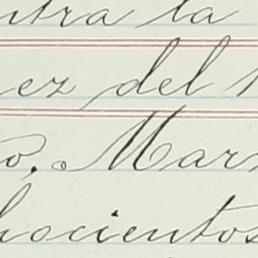 ntra la
ez del
o, Mar
hocientos